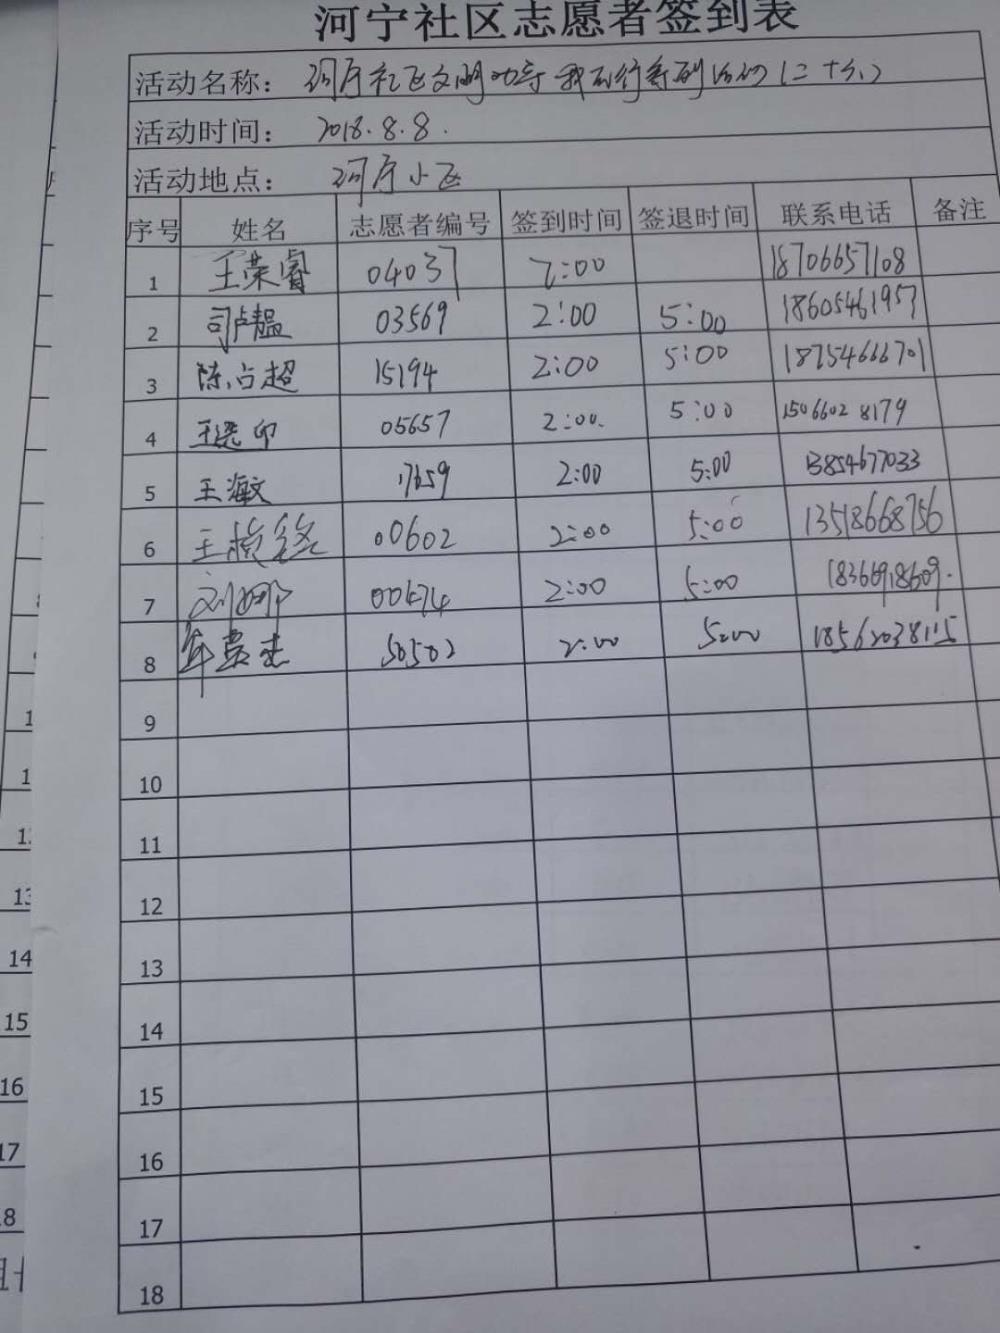 河宁社区志愿者签到表
活动名称: 河宁社区文明劝导 我而行系列活动(二十六)
活动时间: 2018.8.8.
活动地点: 河宁小区
序号 姓名 志愿者编号 签到时间 签退时间 联系电话 备注
1 王荣睿 04037 2:00 18706657108
2 司卢韫 03569 2:00 5:00 18605461957
3 陈占超 15194 2:00 5:00 18754666701
4 王 印 05657 2:00. 5:00 15066028179
5 王海文 17659 2:00 5:00 13854677033
6 王桢铭 00602 2:00 5:00 13518668756
7 刘娜 00474 2:00 5:00 18366918609.
8 2:00 5:00 18562038115
9
10
11
12
13
14
15
16
17
18
1
1
13
14
15
16
17
18